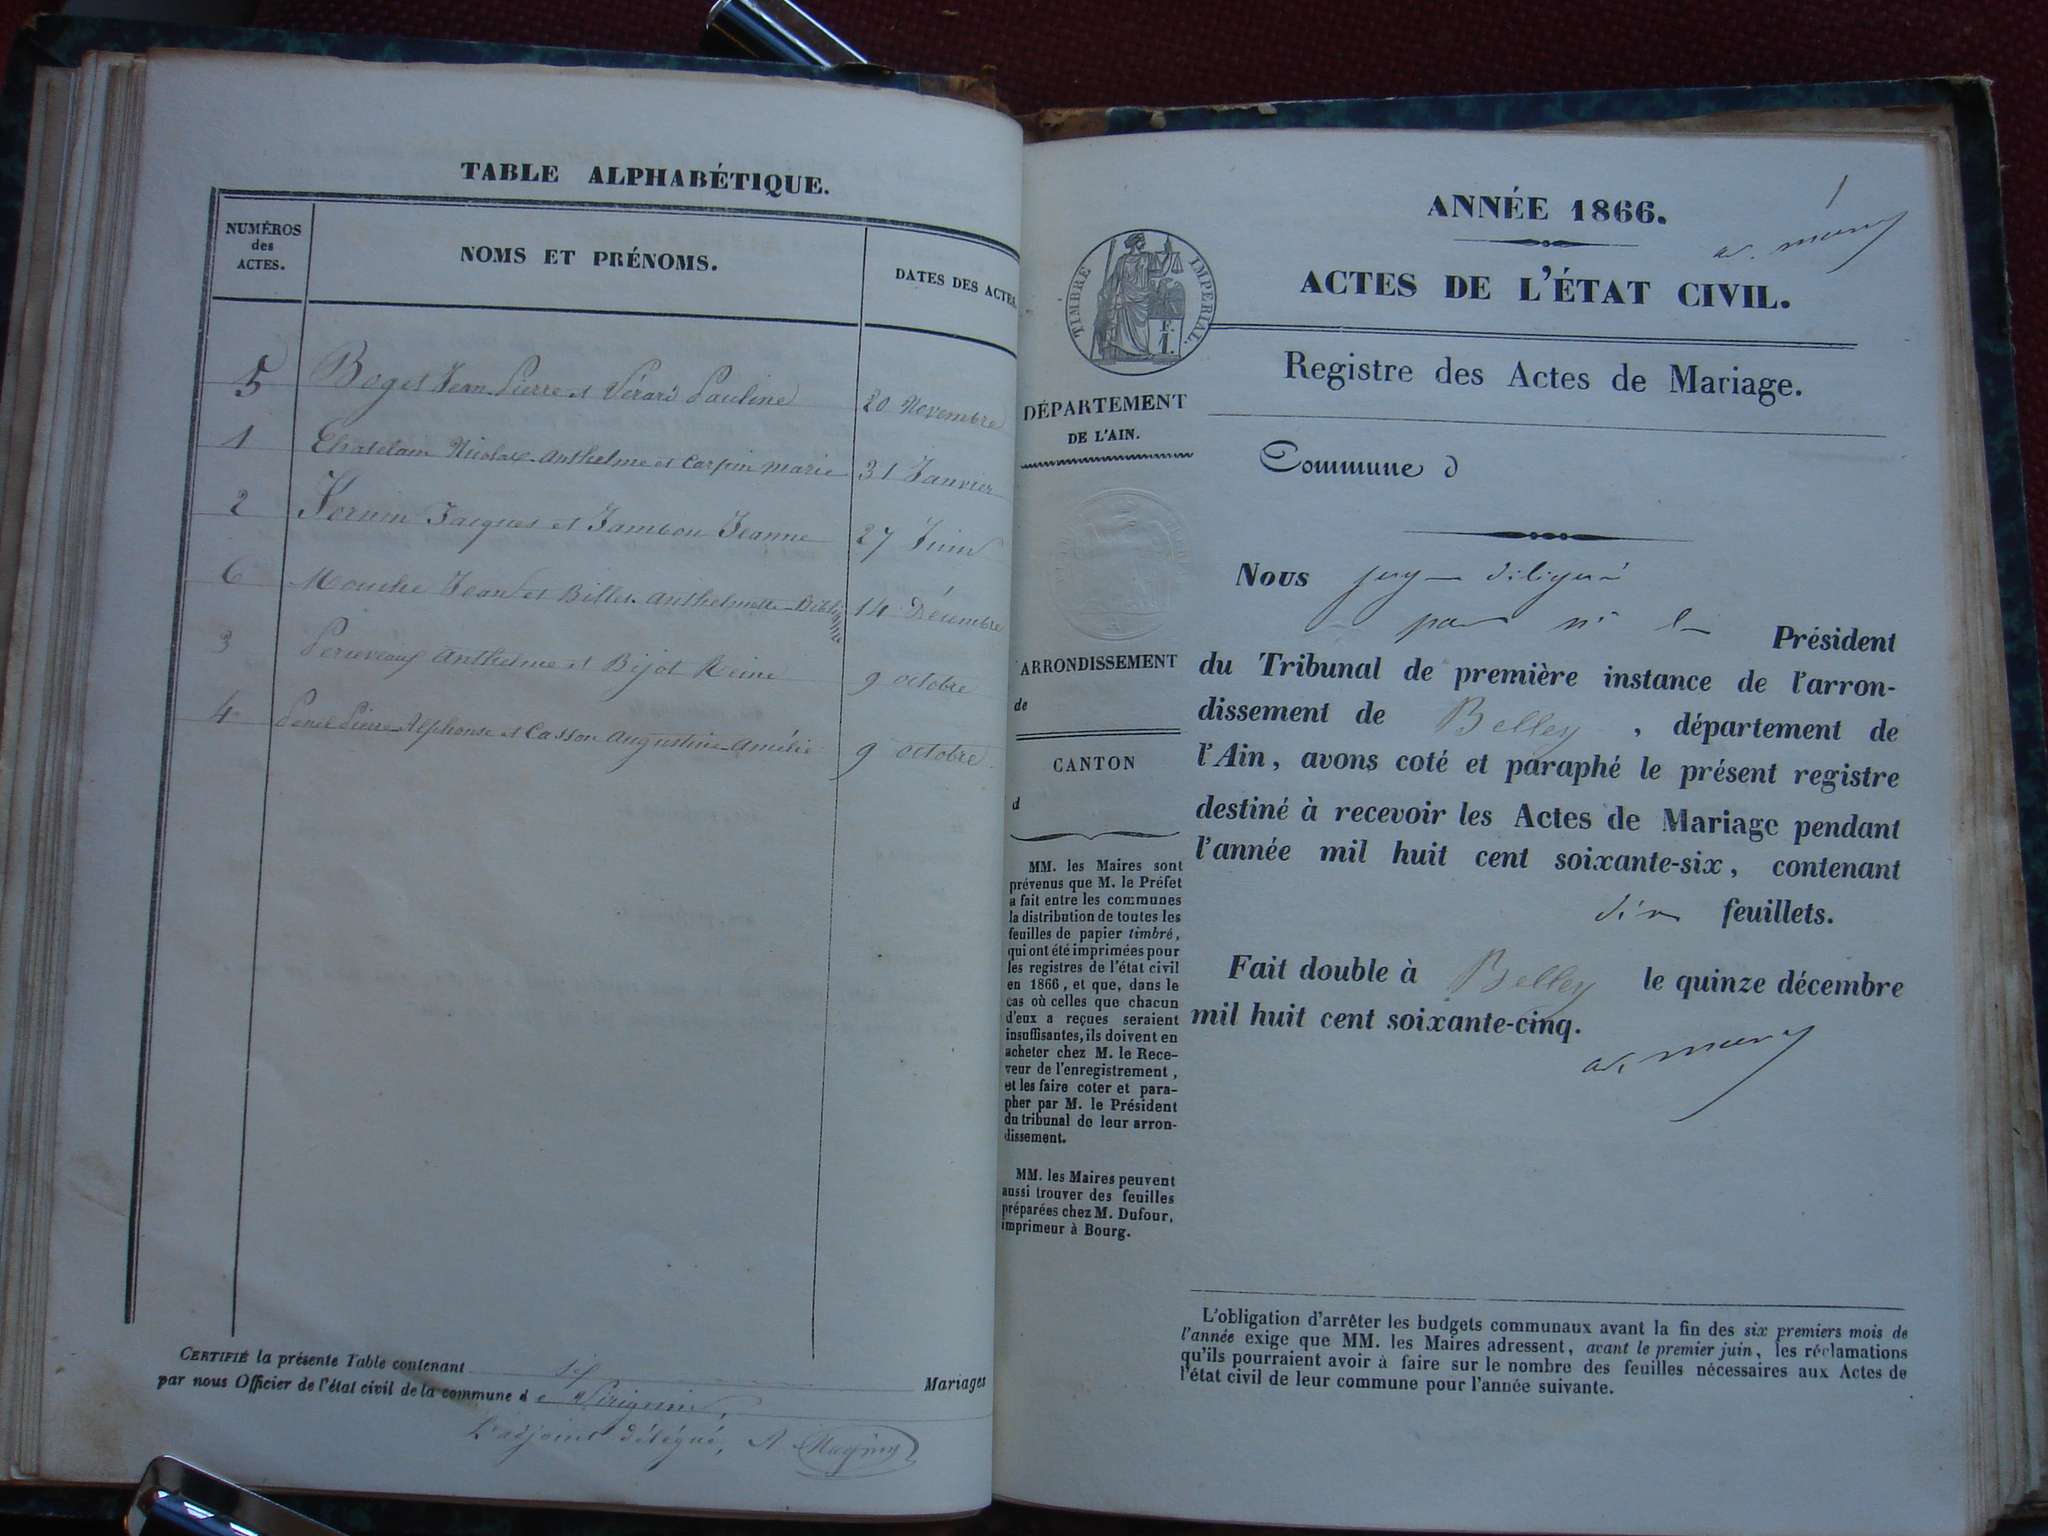 TABLE ALPHABÉTIQUE.
NUMÉROS
des
ACTES.
NOMS ET PRÉNOMS.
DATES DES ACTES.
5 Boget Jean Pierre et Pauline 20 Novembre
1 Chatelain Nicolas Anthelme et Carpin Marie 31 Janvier
2 Jacques et Jambon Jeanne 27 Juin
6 Jean et Billet Anthelmette 14 Décembre
3 Anthelme et Bijot Reine 9 octobre
4 Pierre Alphonse et Casson Augustine Amélie 9 octobre
CERTIFIÉ la présente Table contenant six Mariages
par nous Officier de l'état civil de la commune de Virignin,
L'adjoint délégué,
1
ANNÉE 1866.
ACTES DE L'ÉTAT CIVIL.
TIMBRE IMPERIAL.
1 F.
Registre des Actes de Mariage.
DÉPARTEMENT
DE L'AIN.
Commune d
ARRONDISSEMENT
de
CANTON
d
MM. les Maires sont
prévenus que M. le Préfet
a fait entre les communes
la distribution de toutes les
feuilles de papier timbré,
qui ont été imprimées pour
les registres de l'état civil
en 1866, et que, dans le
cas où celles que chacun
d'eux a reçues seraient
insuffisantes, ils doivent en
acheter chez M. le Rece-
veur de l'enregistrement,
et les faire coter et para-
pher par M. le Président
du tribunal de leur arron-
dissement.
MM. les Maires peuvent
aussi trouver des feuilles
préparées chez M. Dufour,
imprimeur à Bourg.
Nous juge délégué
par Mr le Président
du Tribunal de première instance de l'arron-
dissement de Belley, département de
l'Ain, avons coté et paraphé le présent registre
destiné à recevoir les Actes de Mariage pendant
l'année mil huit cent soixante-six, contenant
dix feuillets.
Fait double à Belley le quinze décembre
mil huit cent soixante-cinq.
L'obligation d'arrêter les budgets communaux avant la fin des six premiers mois de
l'année exige que MM. les Maires adressent, avant le premier juin, les réclamations
qu'ils pourraient avoir à faire sur le nombre des feuilles nécessaires aux Actes de
l'état civil de leur commune pour l'année suivante.